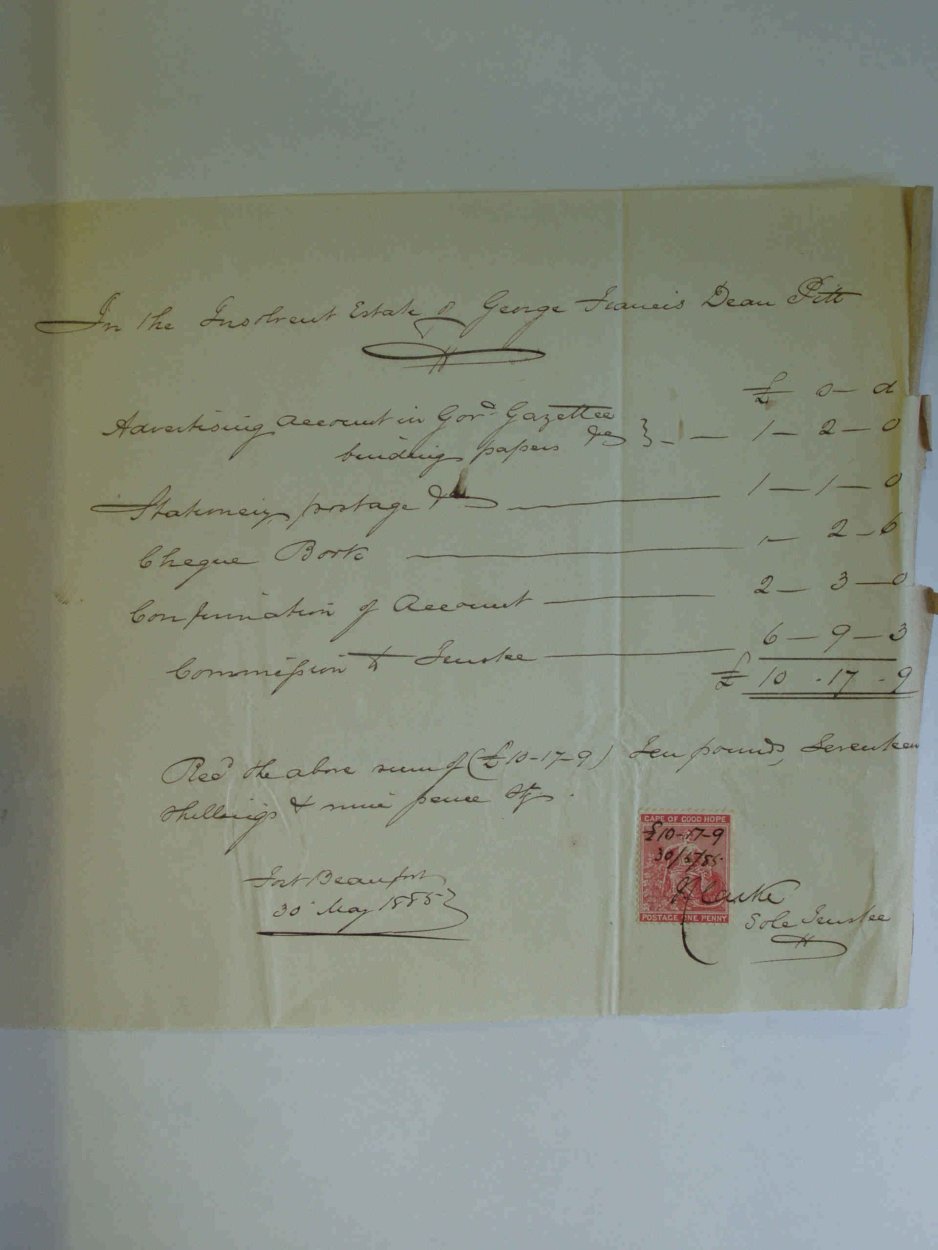 In the Insolvent Estate of George Francis Dean Pitt
£ s — d
Advertising Account in Govt. Gazettee
binding papers &c } — — 1 — 2 — 0
Stationery, postage &c — 1 — 1 — 0
Cheque Book — " — 2 — 6
Confirmation of Account — 2 — 3 — 0
Commission to Trustee — 6 — 9 — 3
£ 10 - 17 - 9
Recd the above sum of (£10-17-9) Ten pounds, Seventeen
Shillings & nine pence Stg.
CAPE OF GOOD HOPE
£10-17-9
30/5/85
POSTAGE ONE PENNY
Fort Beaufort
30 May 1885
Sole Trustee